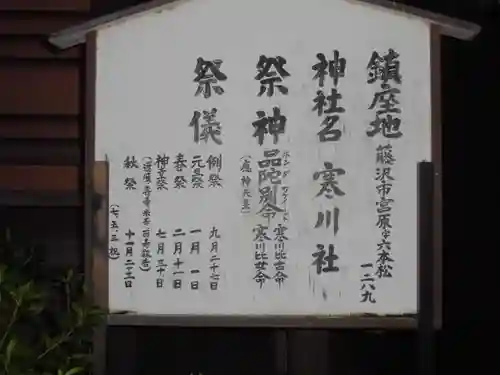 鎮座地 藤沢市宮原字六本松
一二八九
神社名 寒川社
祭神 品陀別命 寒川比古命
寒川比女命
ホンダワケノミコト
(応神天皇)
祭儀
例祭 九月二十七日
元旦祭 一月一日
春祭 二月十一日
神幸祭 七月三十日
秋祭 十一月二十三日
(七・五・三祝)